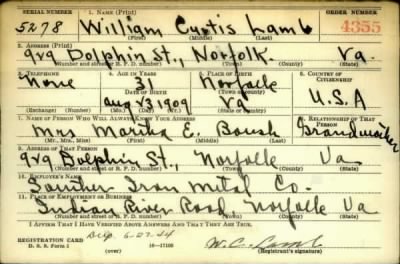 SERIAL NUMBER 1. NAME (Print) ORDER NUMBER
5278 William Curtis Lamb 4355
(First) (Middle) (Last)
2. ADDRESS (Print)
929 Dolphin St., Norfolk. Va.
(Number and street or R. F. D. number) (Town) (County) (State)
3. TELEPHONE 4. AGE IN YEARS 5. PLACE OF BIRTH 6. COUNTRY OF CITIZENSHIP
None 31 Norfolk
DATE OF BIRTH (Town or county)
Aug 23 1909 Va U.S.A
(Exchange) (Number) (Mo.) (Day) (Yr.) (State or country)
7. NAME OF PERSON WHO WILL ALWAYS KNOW YOUR ADDRESS 8. RELATIONSHIP OF THAT PERSON
Mrs E. Boush Grandmother
(Mr., Mrs., Miss) (First) (Middle) (Last)
9. ADDRESS OF THAT PERSON
929 Dolphin St., Norfolk Va
(Number and street or R. F. D. number) (Town) (County) (State)
10. EMPLOYER'S NAME
Iron Metal Co.
11. PLACE OF EMPLOYMENT OR BUSINESS
Indian River Road Norfolk Va
(Number and street or R. F. D. number) (Town) (County) (State)
I AFFIRM THAT I HAVE VERIFIED ABOVE ANSWERS AND THAT THEY ARE TRUE.
REGISTRATION CARD
D. S. S. Form 1 (over) 16—17105 W. C. Lamb
(Registrant's signature)